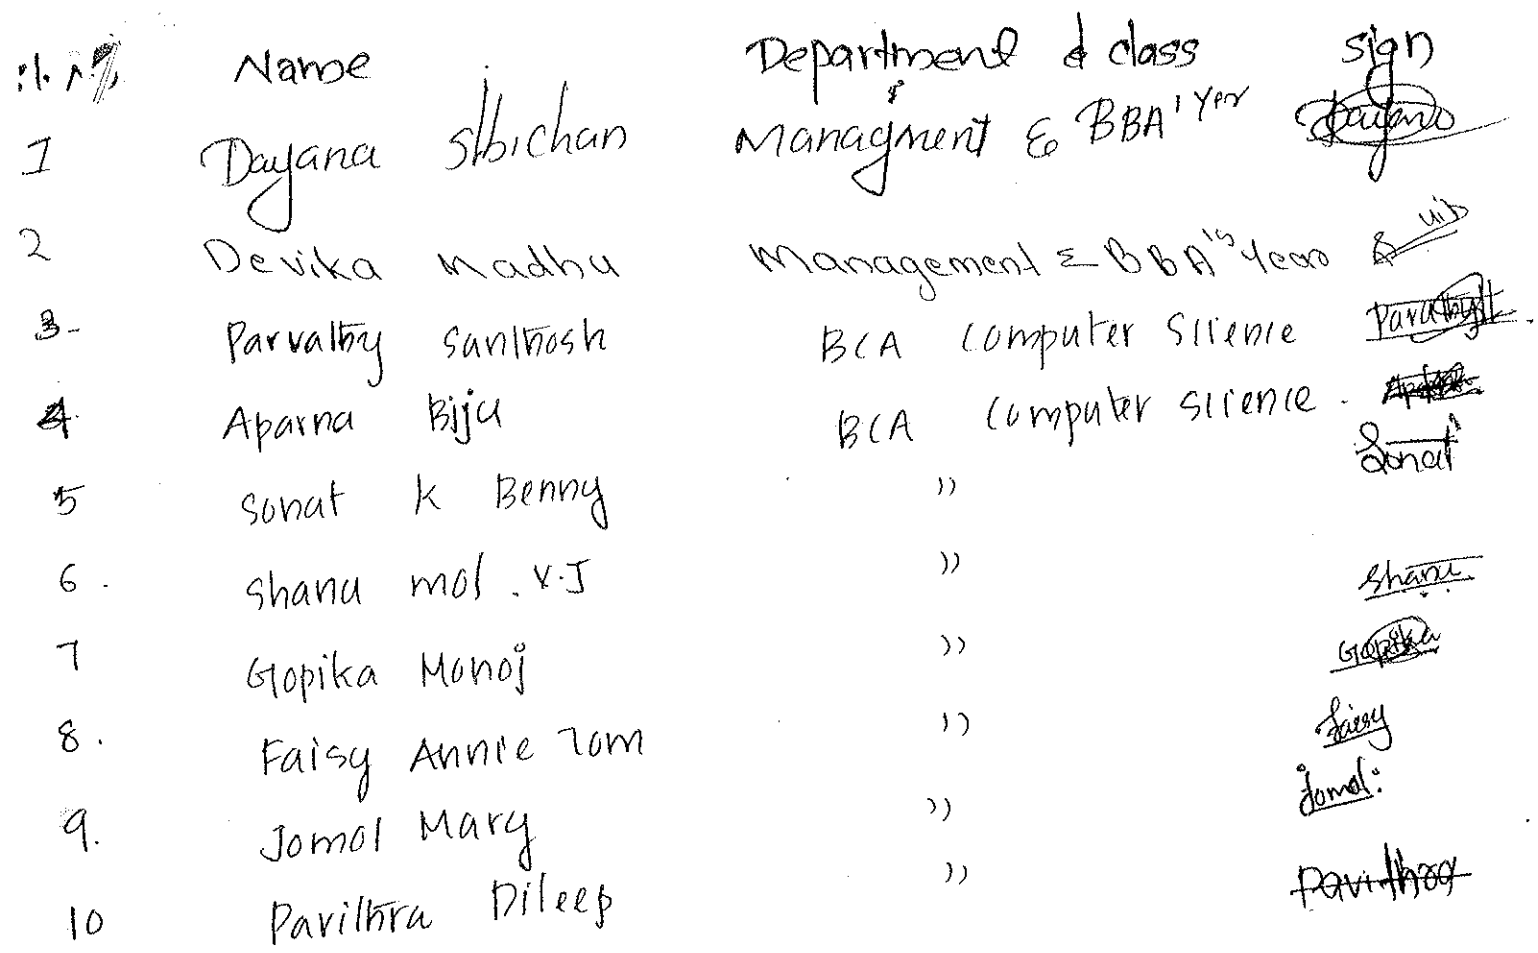 Name Department & class sign
1 Dayana Sibichan Managment & BBA 1 Yer Dayana
2 Devika Madhu Management & BBA 1st Year
3- Parvathy Santhosh BCA Computer Science Parvathy
4 Aparna Biju BCA Computer Science.
5 Sonat K Benny " Sonat
6. Shanu mol. V.J " Shanu
7 Gopika Manoj " Gopika
8. Faisy Annie Tom " Faisy
9. Jomol Mary " Jomol
10 Pavithra Dileep " Pavithra